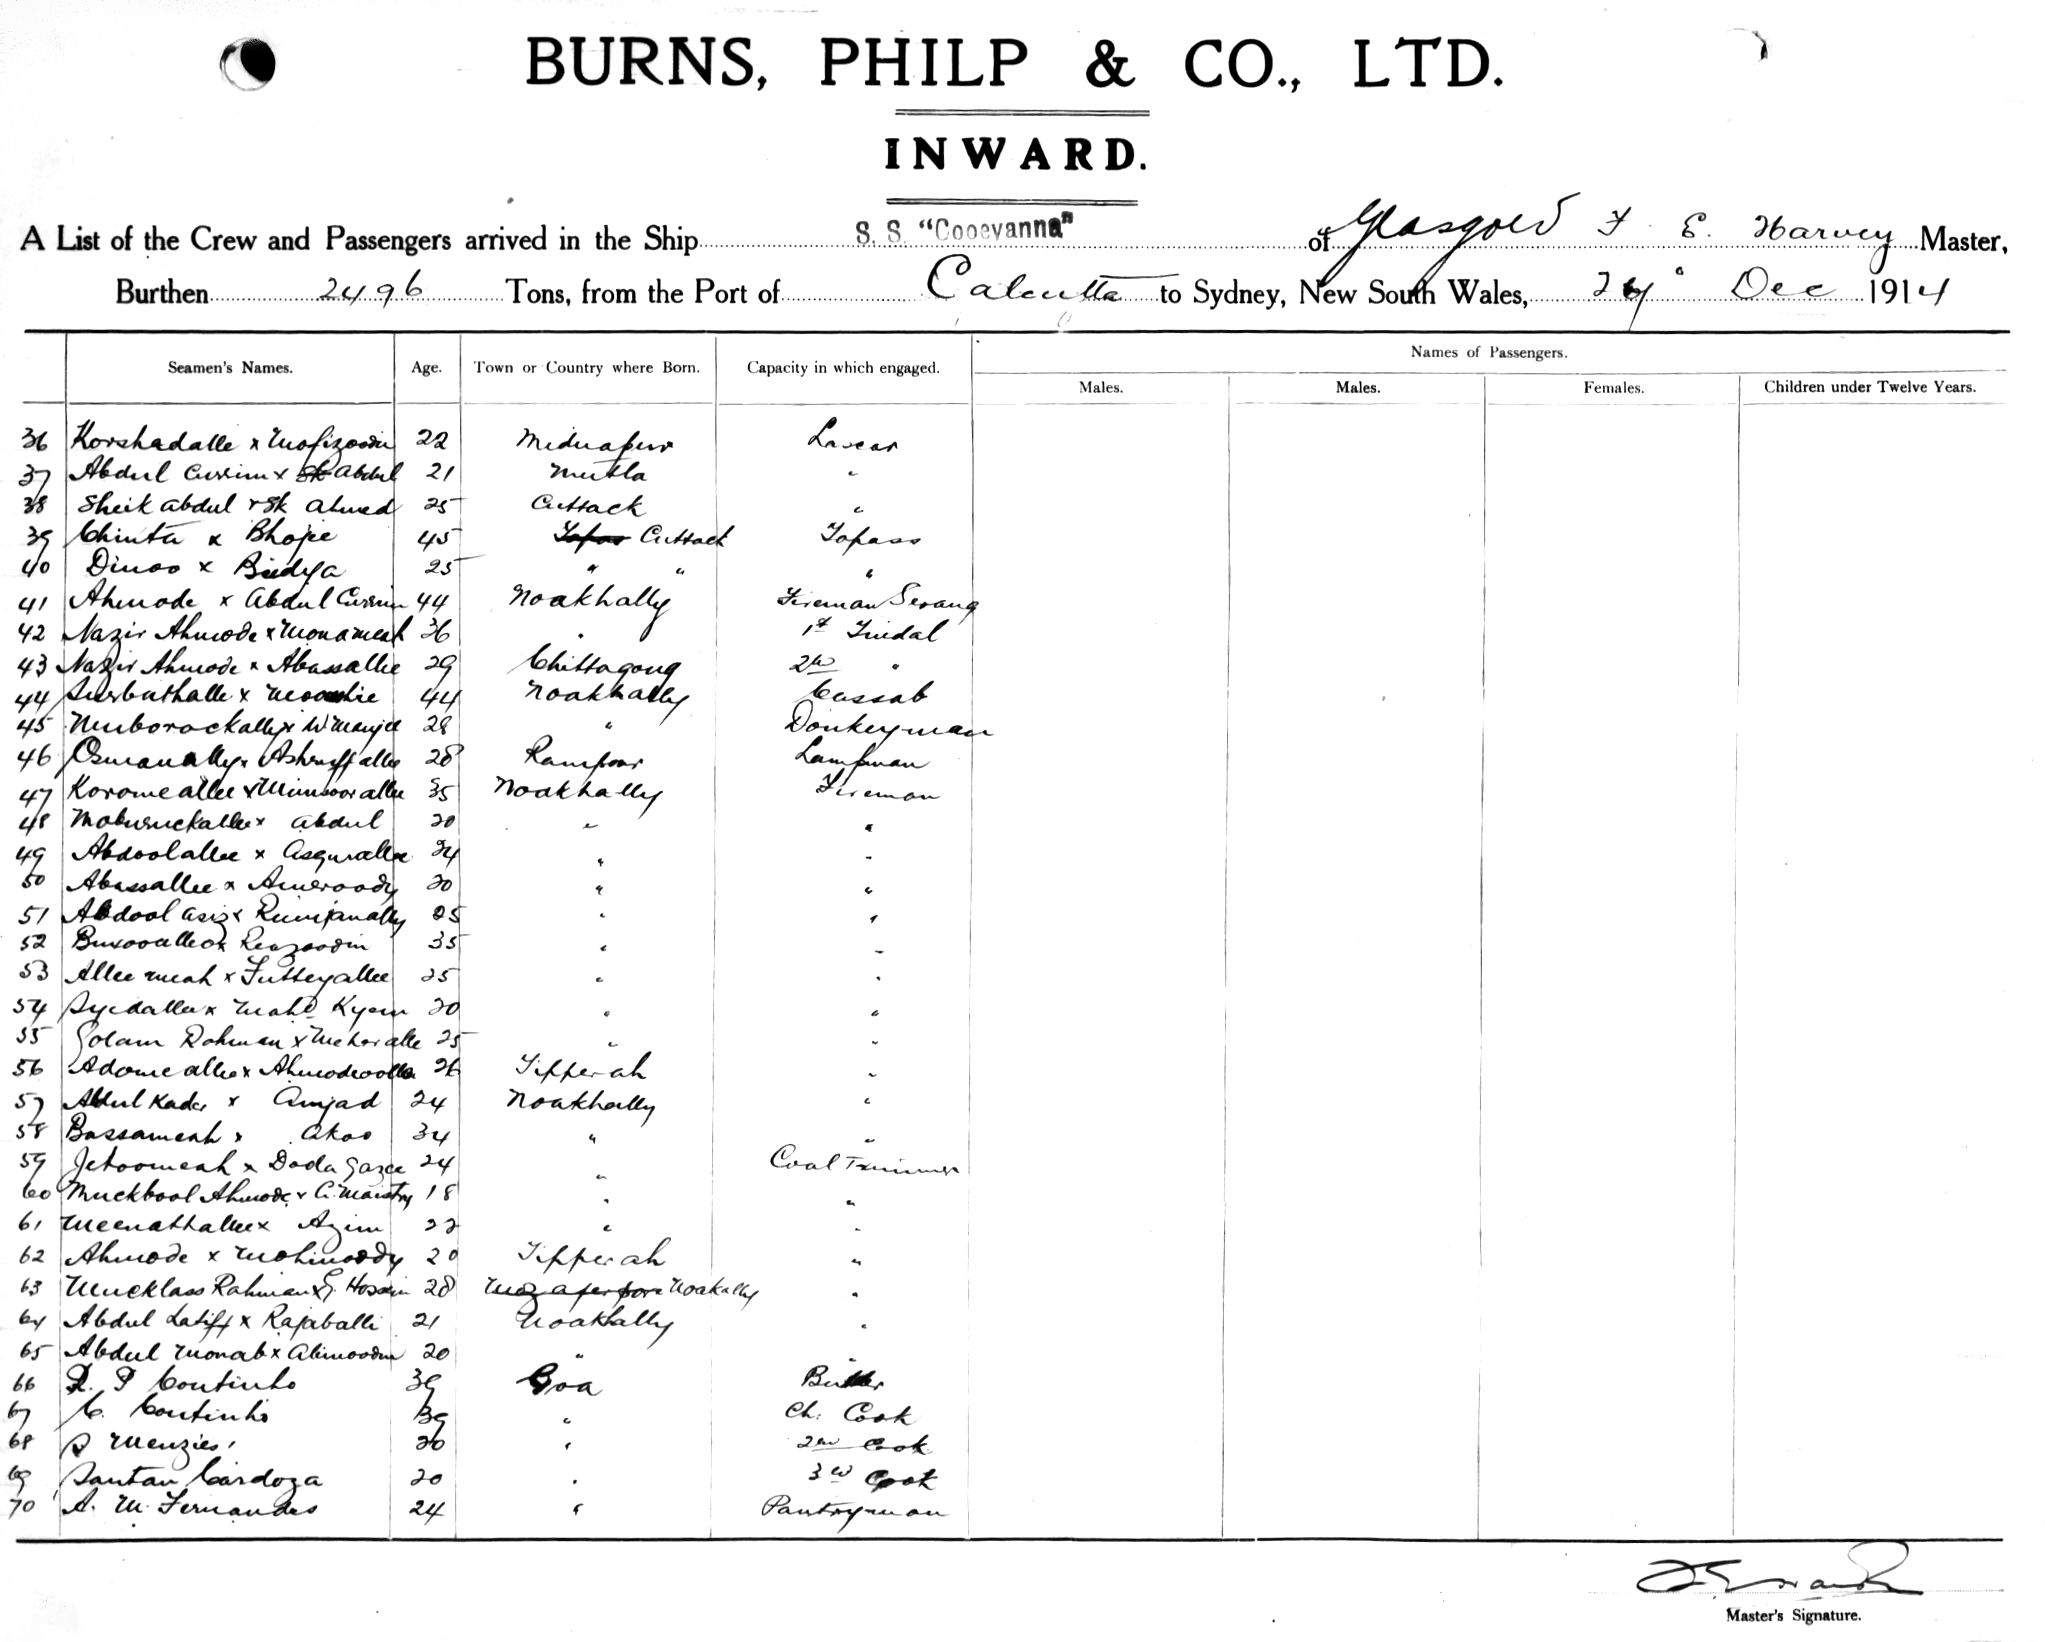 BURNS, PHILP & CO., LTD.
INWARD.
A List of the Crew and Passengers arrived in the Ship S. S. "Cooeyanna" of Glasgow F. E. Harvey Master,
Burthen 2496 Tons, from the Port of Calcutta to Sydney, New South Wales, Dec 1914
Names of Passengers.
Seamen's Names. Age. Town or Country where Born. Capacity in which engaged. Males. Males. Females. Children under Twelve Years.
36 Korshadalle x Mofizoodin 22 Midnapur Lascar
37 Abdul Currim x Sk Abdul 21 Mutla "
38 Sheik Abdul x Sk Ahmed 25 Cuttack "
39 Chinta x Bhope 45 Topas Cuttack Topass
40 Dinoo x Bidya 25 " " "
41 Ahmode x Abdul Currim 44 Noakhally Fireman Serang
42 Nazir Ahmode x Monameah 36 " 1st Tindal
43 Nazir Ahmode x Abassallie 29 Chittagong 2nd "
44 x 44 Noakhally Cassab
45 Muborockally x 28 " Donkeyman
46 Osmanally x Ashruffallee 28 Rampoor Lampman
47 Koromeallee x Munsoorallee 35 Noakhally Fireman
48 x Abdul 20 " "
49 Abdoolallee x Asgurallee 24 " "
50 Abassallee x Ameroody 20 " "
51 Abdool Asiz x Rumjanally 25 " "
52 Buxooallee x Reazoodin 35 " "
53 Allee meah x Futteyallee 25 " "
54 Syedallee x Mahd Kyem 20 " "
55 Golam Rohman x Meherallee 25 " "
56 Adomeallee x Ahmodwoolla 26 Tipperah "
57 Abdul Kader x Amjad 24 Noakhally "
58 Bassameah x Akoo 34 " "
59 Jetoomeah x Doda Gazee 24 " Coal Trimmer
60 Muckbool Ahmode x C. Maistry 18 " "
61 Meenathallee x Azim 22 " "
62 Ahmode x Mohimoddy 20 Tipperah "
63 Mucklass Rahman x G. Hossein 28 Mozaferpore Noakally "
64 Abdul Latiff x Rajaballi 21 Noakhally "
65 Abdul Monab x Alimoodin 20 " "
66 R. P Coutinho 39 Goa Butler
67 C. Coutinho 39 " Ch. Cook
68 S Menzies 20 " 2nd Cook
69 Santan Cardoza 20 " 3rd Cook
70 A. M. Fernandes 24 " Pantryman
Master's Signature.